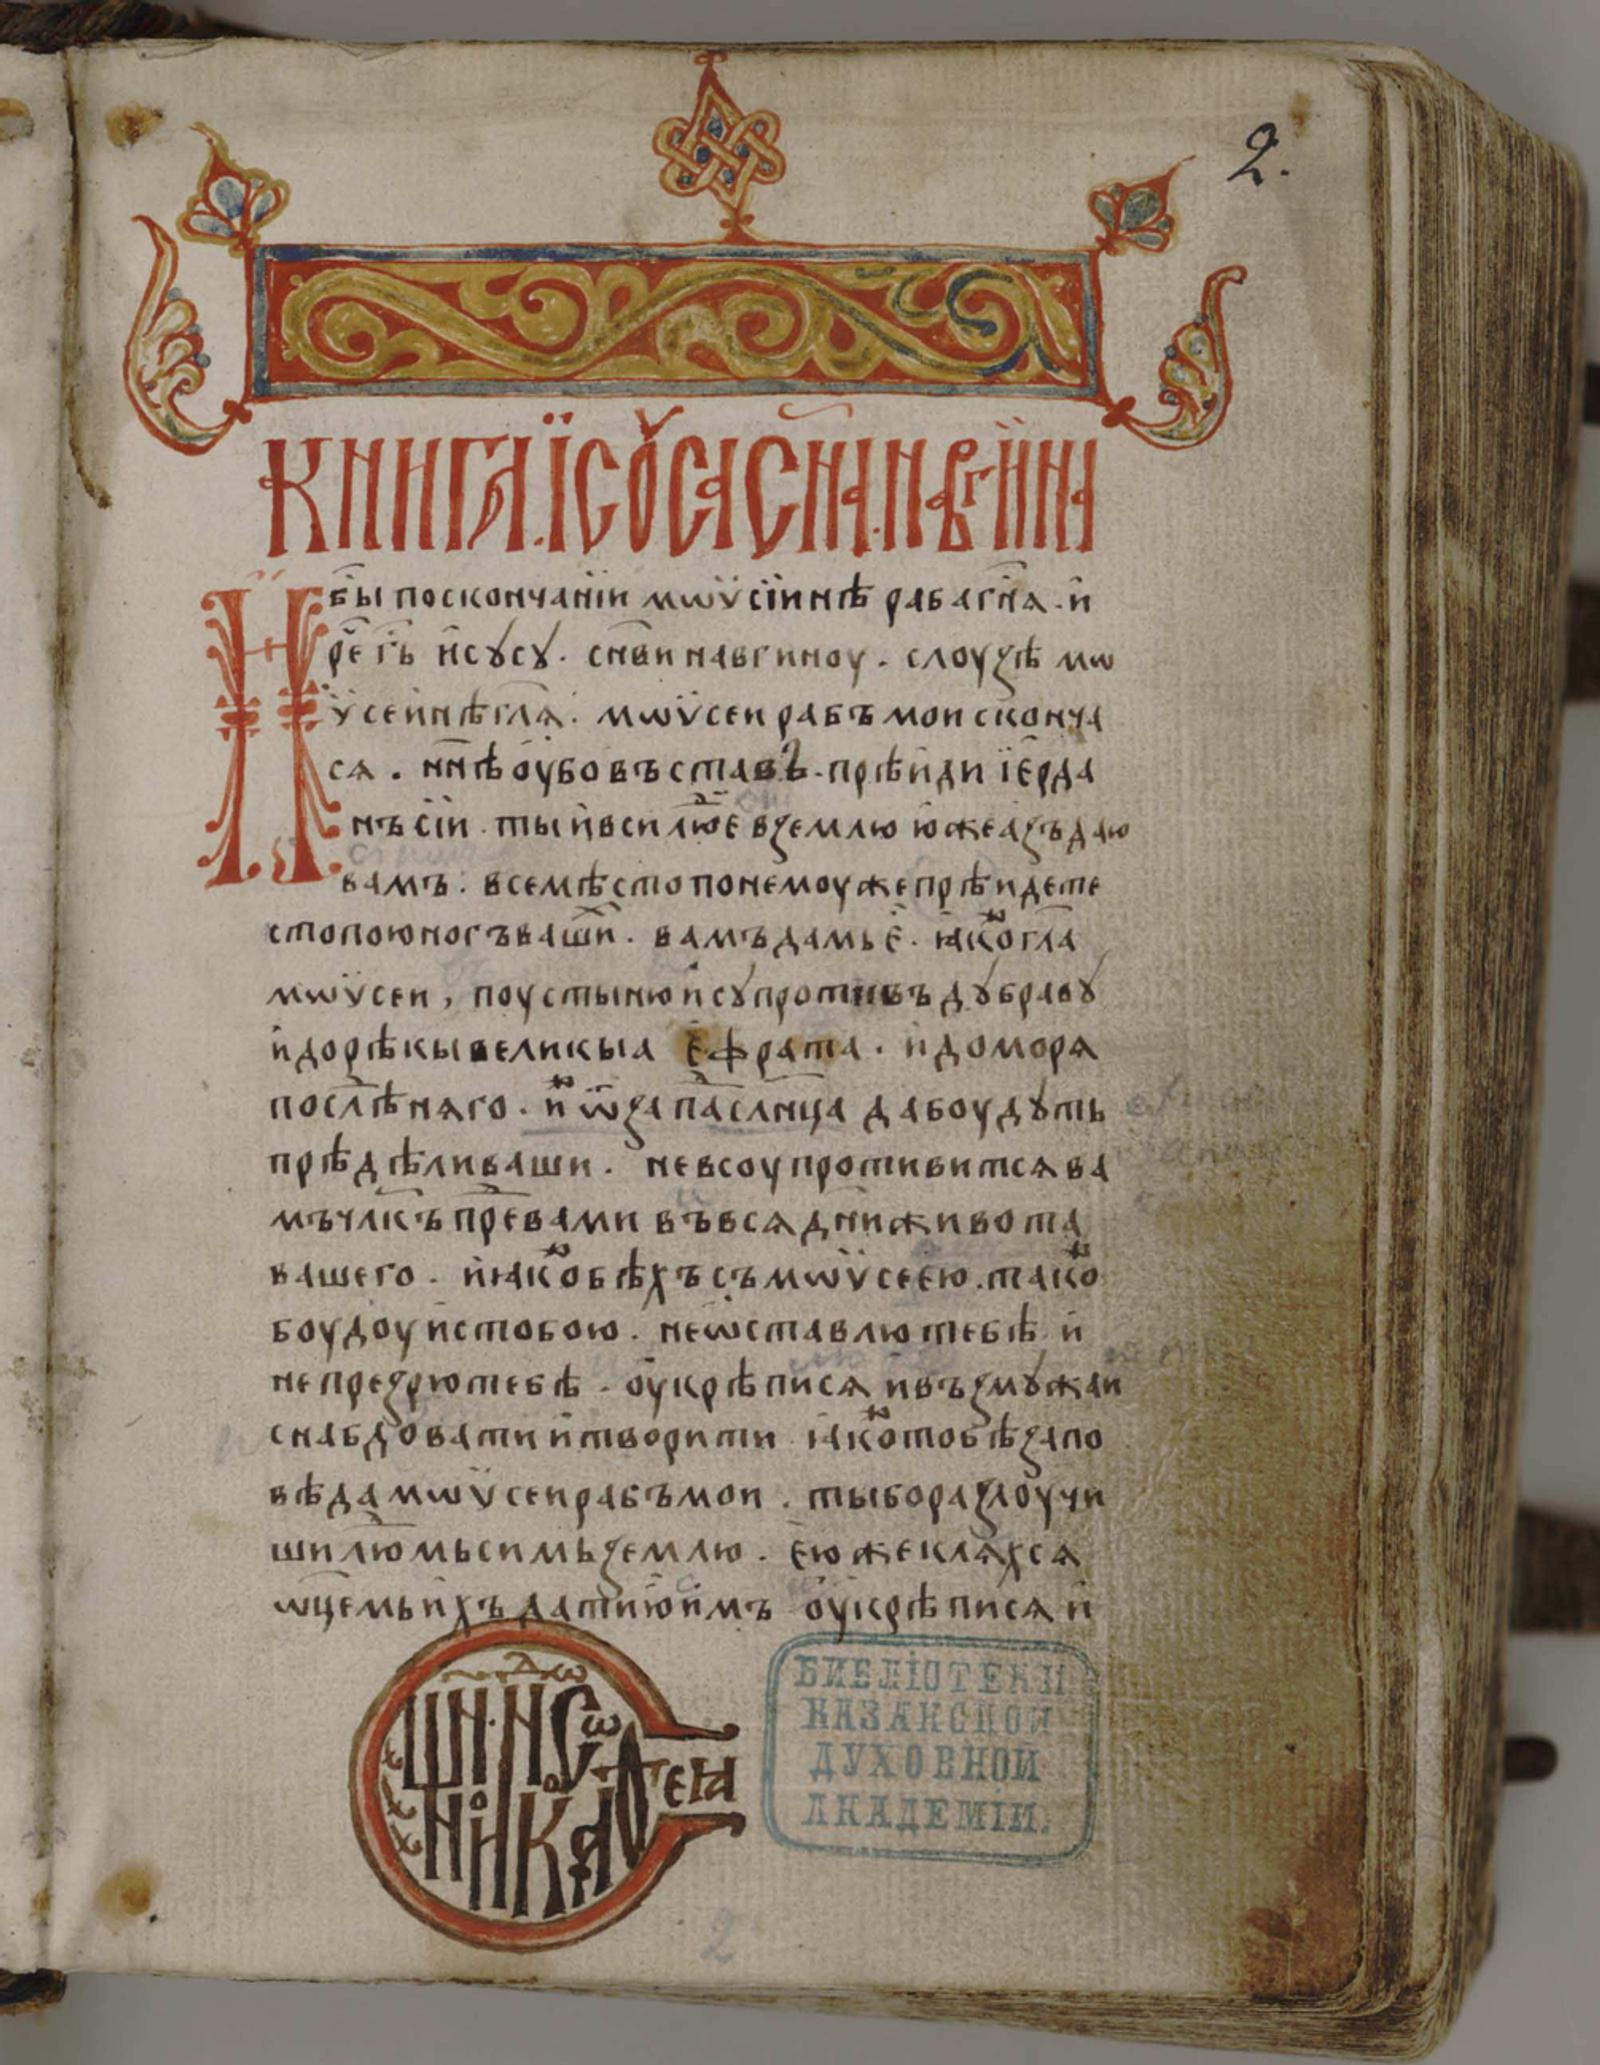 2.
КНИГА. ІСꙊСА СН҃А. НАВГИНА
И бы́ по скончанїи мѡѵсїинѣ раба гн҃я. и
рече́ гь҃ и҆сꙋсꙋ. сн҃ви навгиноу. слоуꙁѣ мѡ
ѵ̈сеинѣ гл҃ѧ. мѡѵсеи рабъ мои сконча
сѧ. нн҃ѣ оубо въставъ. прѣиди їерда
нъ сїи. ты и вси лю́е в ꙁемлю юже аꙁъ даю
вамъ. все мѣсто по немоуже прѣидете
стопою ногъ ваши́. вамъ дамь е. ꙗко гл҃а
мѡѵсеи, поустыню и сꙋпротивъ дꙋбравꙋ
и до рѣкы великыа ефрата. и до морѧ
послѣ́нѧго. и ѿ ꙁапа́ слн҃ца да боудꙋть
прѣдѣли ваши. не въсоупротивитсѧ ва
мъ чл҃къ пре́ вами въ всѧ дн҃и живота
вашего. и ꙗко бѣхъ съ мѡѵсеею. тако
боудоу и с тобою. не ѡставлю тебѣ и
не преꙁрю тебѣ. оукрѣписѧ и въꙁмꙋжаи
снабдовати и творити ꙗко тобѣ ꙁапо
вѣда мѡѵсеи рабъ мои. ты бо раꙁлоучи
ши лю́мь симь ꙁемлю. еюже клѧхсѧ
ѡц҃емь ихъ дати ю имъ оукрѣписѧ и
БИБЛІОТЕКИ
КАЗАНСКОЙ
ДУХОВНОЙ
АКАДЕМІИ.
2